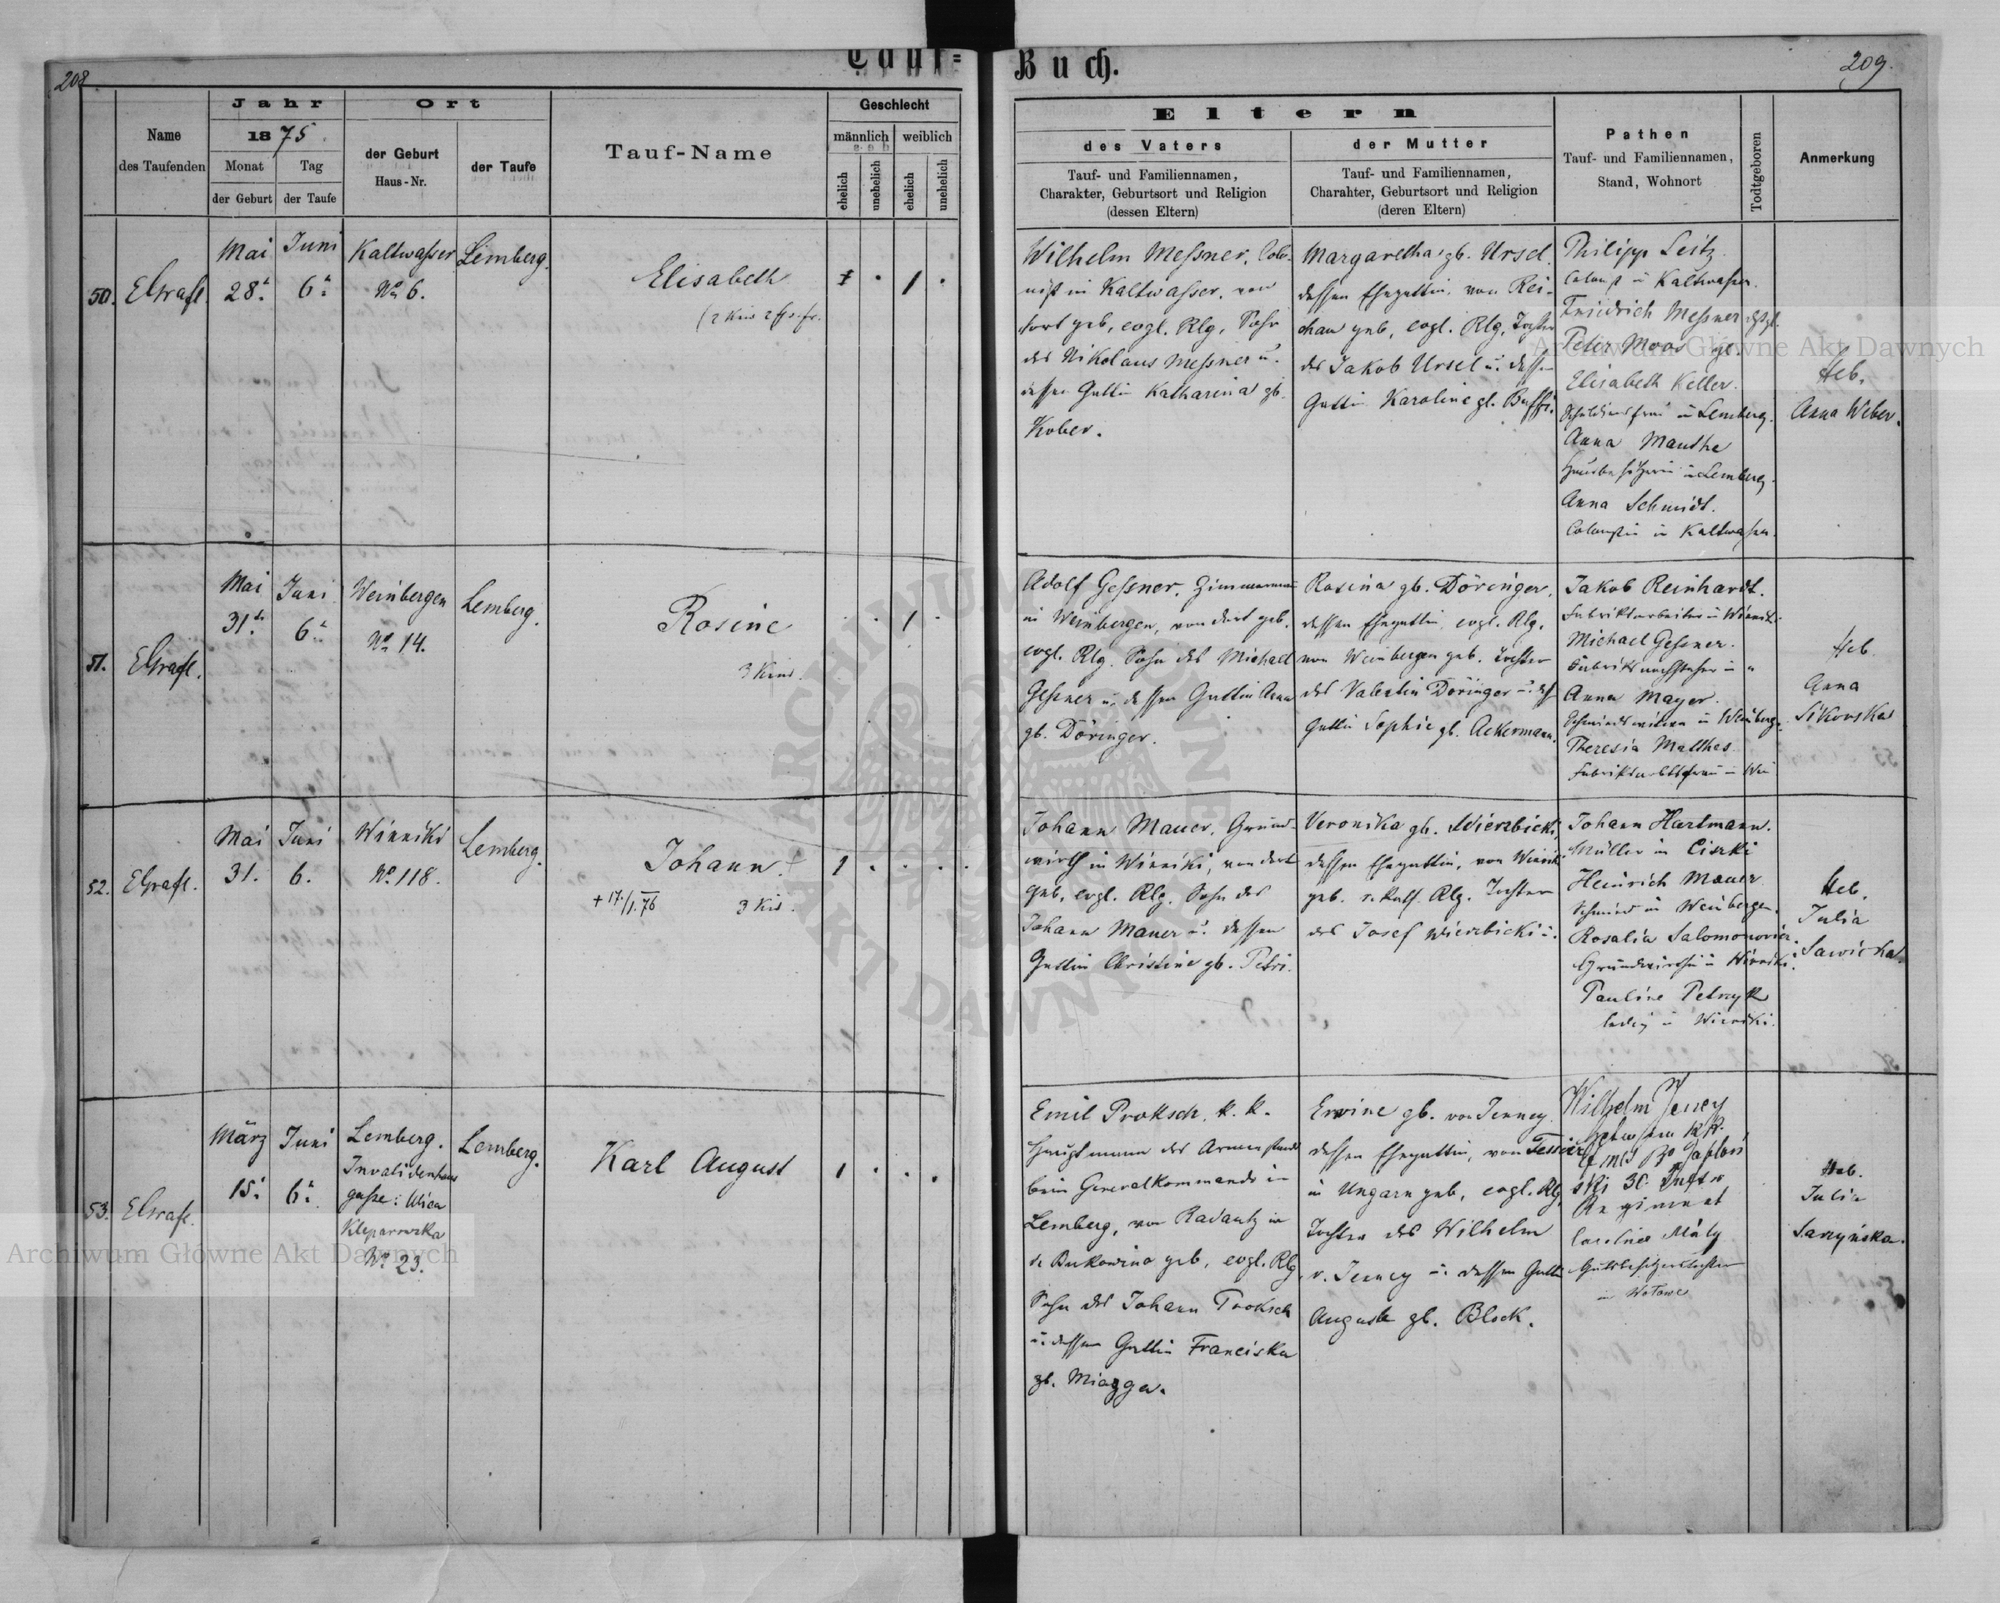 208
Tauf=
Name
des Taufenden
Jahr
1875.
Monat
der Geburt
Tag
der Taufe
Ort
der Geburt
Haus-Nr.
der Taufe
Tauf-Name
Geschlecht
männlich
weiblich
ehelich
unehelich
ehelich
unehelich
50.
EGrafl
Mai
28.
Juni
6.
Kaltwasser
No 6.
Lemberg.
Elisabeth
51.
EGrafl.
Mai
31.
Juni
6.
Weinbergen
No 14.
Lemberg.
Rosine
3 Kind.
52.
EGrafl.
Mai
31.
Juni
6.
Winniki
No 118.
Lemberg.
Johann.
+ 17./I. 76
1
53.
EGrafl.
März
15.
Juni
6.
Lemberg.
Invalidenhaus
gasse: Ulica
Kleparowska
No 23.
Lemberg.
Karl August
1
Buch.
209.
Eltern
des Vaters
Tauf- und Familiennamen,
Charakter, Geburtsort und Religion
(dessen Eltern)
der Mutter
Tauf- und Familiennamen,
Charahter, Geburtsort und Religion
(deren Eltern)
Pathen
Tauf- und Familiennamen,
Stand, Wohnort
Todtgeboren
Anmerkung
Wilhelm Messner, Colo-
nist in Kaltwasser, von
dort geb, evgl. Rlg, Sohn
des Nikolaus Messner u.
dessen Gattin Katharina gb.
Kober.
Margaretha gb. Ursel.
dessen Ehegattin, von Rei-
chau geb, evgl. Rlg, Tochter
des Jakob Ursel u. dessen
Gattin Karoline
Philipp Seitz.
Colonist in Kaltwasser.
Friedrich Messner
Peter Moos
Elisabeth Keller.
in Lemberg.
Anna Manthe
Hausbesitzerin in Lemberg.
Anna Schmidt.
Colonistin in Kaltwasser.
Heb.
Anna Weber.
Adolf Gessner, Zimmermann
in Weinbergen, von dort geb,
evgl. Rlg. Sohn des Michael
Gessner u. dessen Gattin Anna
gb. Döringer.
Rosina gb. Döringer,
dessen Ehegattin, evgl. Rlg,
von Weinbergen geb. Tochter
des Valentin Döringer u. dess
Gattin Sophie gb. Ackermann.
Jakob Reinhardt.
Fabriksarbeiter in Winniki
Michael Gessner.
Fabriksaufseher in "
Anna Mayer.
in Weinberg.
Theresia Matthes.
Heb.
Anna
Sikorska
Johann Mauer, Grund-
wirth in Winniki, von dort
geb, evgl. Rlg. Sohn des
Johann Mauer u. dessen
Gattin Christine gb. Petri.
Veronika gb. Wierzbicki,
dessen Ehegattin, von Winniki
geb. r. kath. Rlg. Tochter
des Josef Wierzbicki u.
Johann Hartmann.
Müller in Ciszki
Heinrich Mauer
Schmied in Weinbergen.
Rosalia Salomonowicz.
Grundwirthin in Winniki.
Pauline Petryk
ledig in Winniki.
Heb.
Julia
Sawicka.
Emil Proksch, k. k.
Hauptmann des Armeestandes
beim Generalkommando in
Lemberg, von Radautz in
d. Bukowina geb, evgl. Rlg,
Sohn des Johann Proksch
u. dessen Gattin Franciska
gb. Miazga.
Ervine gb. von Jenney
dessen Ehegattin, von
in Ungarn geb, evgl. Rlg,
Tochter des Wilhelm
v. Jenney u. dessen Gattin
Auguste gb. Block.
Wilhelm Jeney
30. Inft.
Regiment
Caroline Mály
Gutsbesitzerstochter
Heb.
Julia
Sarzyńska.
Archiwum Główne Akt Dawnych
Archiwum Główne Akt Dawnych
ARCHIWUM GŁÓWNE AKT DAWNYCH